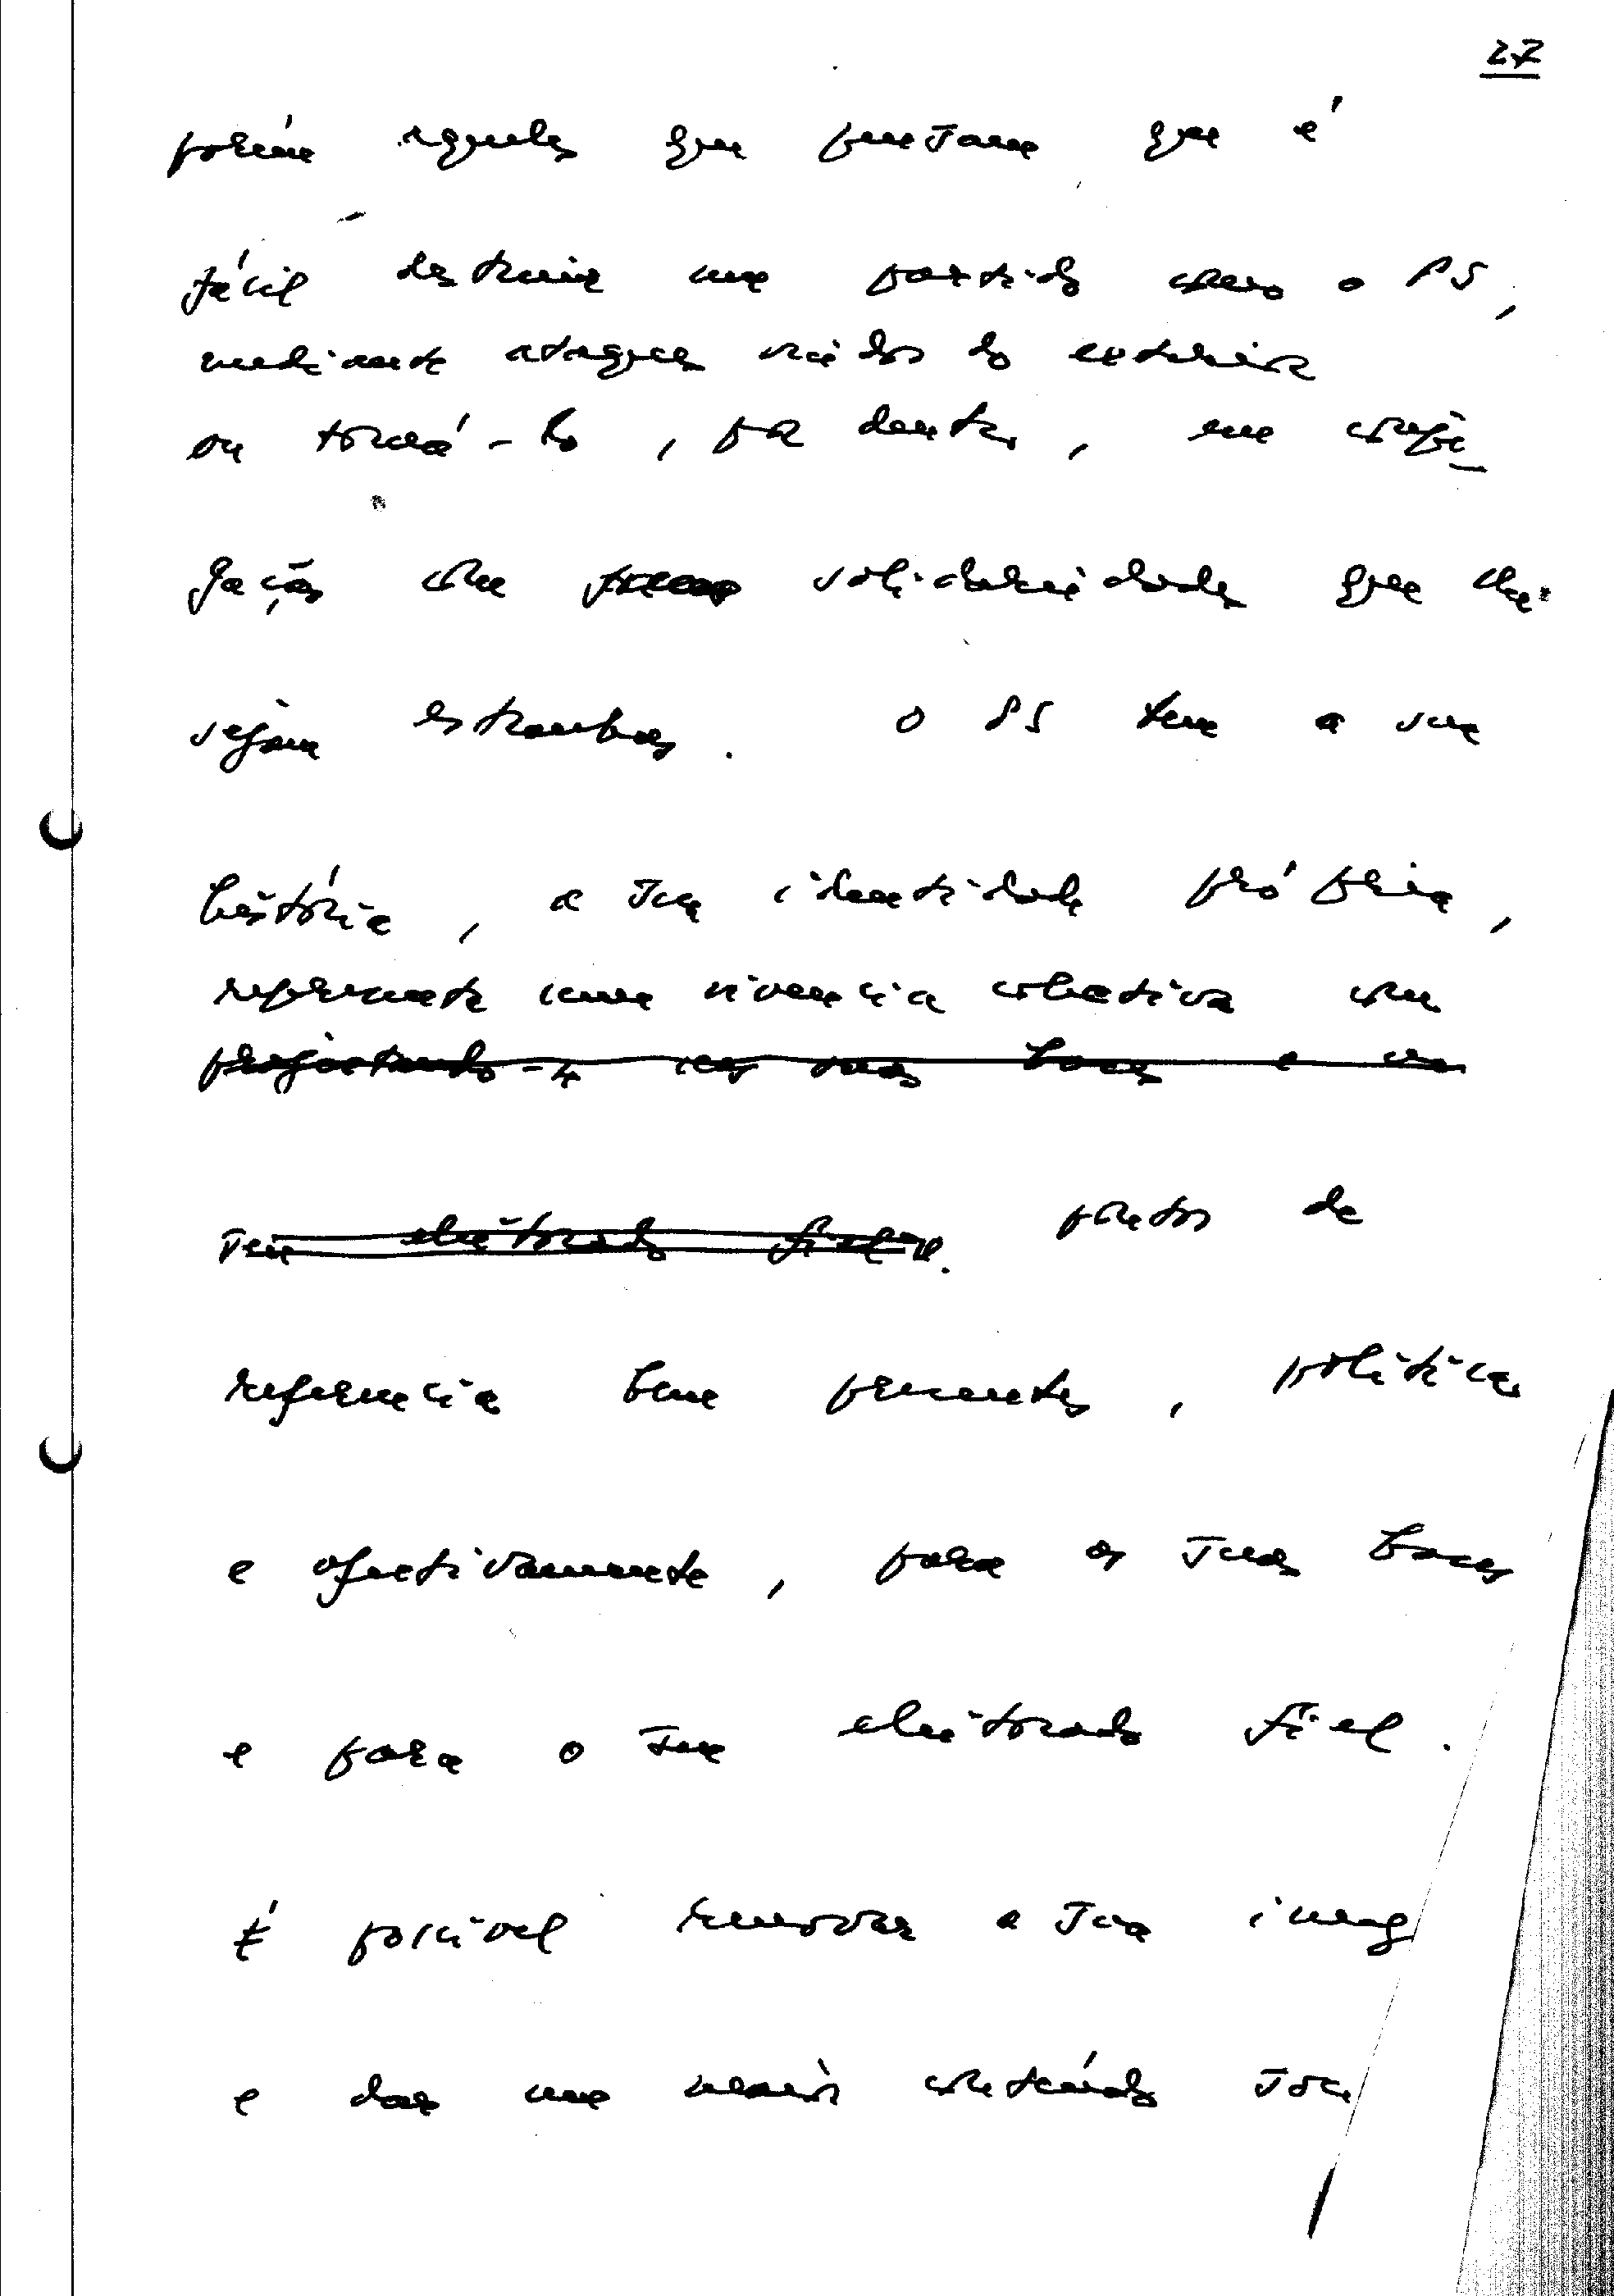 27
porém aqueles que pensam que é
fácil destruir um partido como o PS,
mediante ataques vindos do exterior
ou torná-lo, por dentro, em conju-
gação com solidariedades que lhe
sejam estranhas. O PS tem a sua
história, a sua identidade própria,
representa uma vivência colectiva com
projectando-se nas suas bases e no
seu eleitorado fiel. pontos de
referência bem presentes, política
e afectivamente, para as suas bases
e para o seu eleitorado fiel.
É possível renovar a sua imag
e dar um maior conteúdo soci